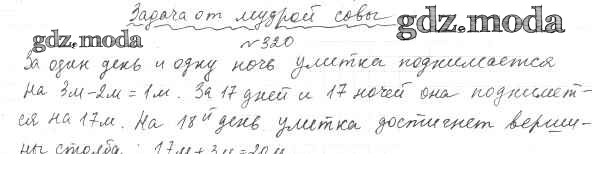 Задача от мудрой совы gdz.moda
gdz.moda №320
За один день и одну ночь улитка поднимается
на 3м-2м=1м. За 17 дней и 17 ночей она поднимет-
ся на 17м. На 18й день улитка достигнет верши-
ны столба. 17м+3м=20м